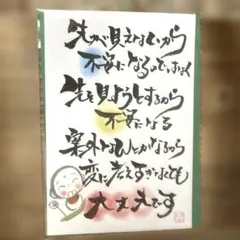 先が見えないから
不安になるのではなく
先を見ようとするから
不安になる
案外なんとかなるから
変に考えすぎなくても
大丈夫です